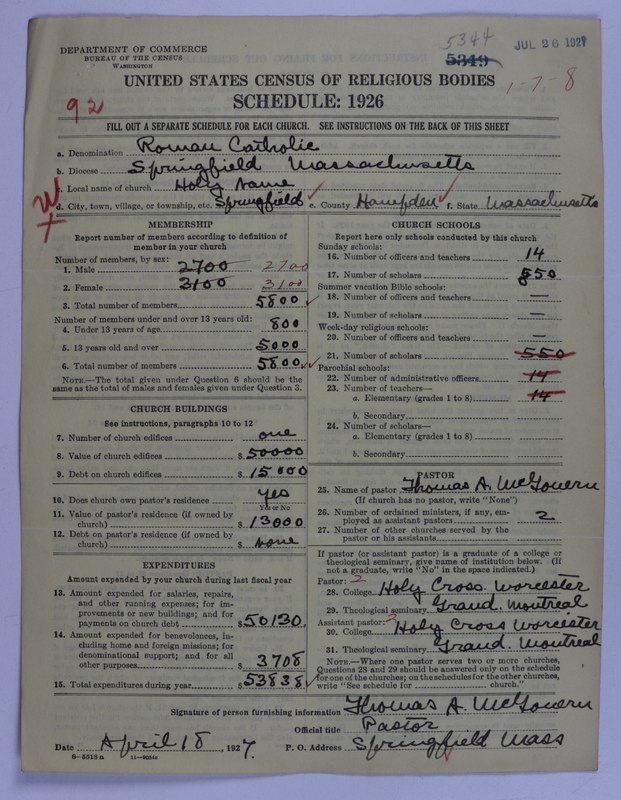 5344
5349
JUL 26 1927
DEPARTMENT OF COMMERCE
BUREAU OF THE CENSUS
WASHINGTON
1-7-8
UNITED STATES CENSUS OF RELIGIOUS BODIES
92
SCHEDULE: 1926
FILL OUT A SEPARATE SCHEDULE FOR EACH CHURCH. SEE INSTRUCTIONS ON THE BACK OF THIS SHEET
a. Denomination Roman Catholic
b. Diocese Springfield Massachusetts
c. Local name of church Holy Name
d. City, town, village, or township, etc. Springfield e. County Hampden f. State Massachusetts
MEMBERSHIP
Report number of members according to definition of
member in your church
Number of members, by sex:
1. Male 2700 2700
2. Female 3100 3100
3. Total number of members 5800
Number of members under and over 13 years old:
4. Under 13 years of age 800
5. 13 years old and over 5000
6. Total number of members 5800
NOTE.—The total given under Question 6 should be the
same as the total of males and females given under Question 3.
CHURCH BUILDINGS
See instructions, paragraphs 10 to 12
7. Number of church edifices one
8. Value of church edifices $ 50000
9. Debt on church edifices $ 15000
10. Does church own pastor's residence yes
Yes or No
11. Value of pastor's residence (if owned by
church) $ 13000
12. Debt on pastor's residence (if owned by
church) $ none
EXPENDITURES
Amount expended by your church during last fiscal year
13. Amount expended for salaries, repairs,
and other running expenses; for im-
provements or new buildings; and for
payments on church debt $ 50130.
14. Amount expended for benevolences, in-
cluding home and foreign missions; for
denominational support; and for all
other purposes $ 3708
15. Total expenditures during year $ 53838
CHURCH SCHOOLS
Report here only schools conducted by this church
Sunday schools:
16. Number of officers and teachers 14
17. Number of scholars 550
Summer vacation Bible schools:
18. Number of officers and teachers —
19. Number of scholars —
Week-day religious schools:
20. Number of officers and teachers —
21. Number of scholars 550
Parochial schools:
22. Number of administrative officers 14
23. Number of teachers—
a. Elementary (grades 1 to 8) 14
b. Secondary
24. Number of scholars—
a. Elementary (grades 1 to 8)
b. Secondary
PASTOR
25. Name of pastor Thomas A. McGovern
(If church has no pastor, write "None")
26. Number of ordained ministers, if any, em-
ployed as assistant pastors 2
27. Number of other churches served by the
pastor or his assistants
If pastor (or assistant pastor) is a graduate of a college or
theological seminary, give name of institution below. (If
not a graduate, write "No" in the space indicated.)
Pastor: 2
28. College Holy Cross. Worcester
29. Theological seminary Grand. Montreal
Assistant pastor: 3
30. College Holy Cross Worcester
31. Theological seminary Grand. Montreal
NOTE.—Where one pastor serves two or more churches,
Questions 28 and 29 should be answered only on the schedule
for one of the churches; on the schedules for the other churches,
write "See schedule for church."
Signature of person furnishing information Thomas A. McGovern
Official title Pastor
Date April 18, 1927. P. O. Address Springfield Mass
8—5318a